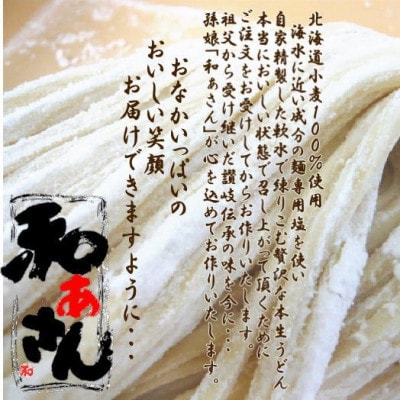 北海道小麦100%使用
海水に近い成分の麺専用塩を使い
自家精製した軟水で練りこむ贅沢な本生うどん
本当においしい状態で召し上がって頂くために
ご注文をお受けしてからお作りいたします。
祖父から受け継いだ讃岐伝承の味を今に・・・
孫娘「和ぁさん」が心を込めてお作りいたします。
おなかいっぱいの
おいしい笑顔
お届けできますように・・・
和ぁさん
和